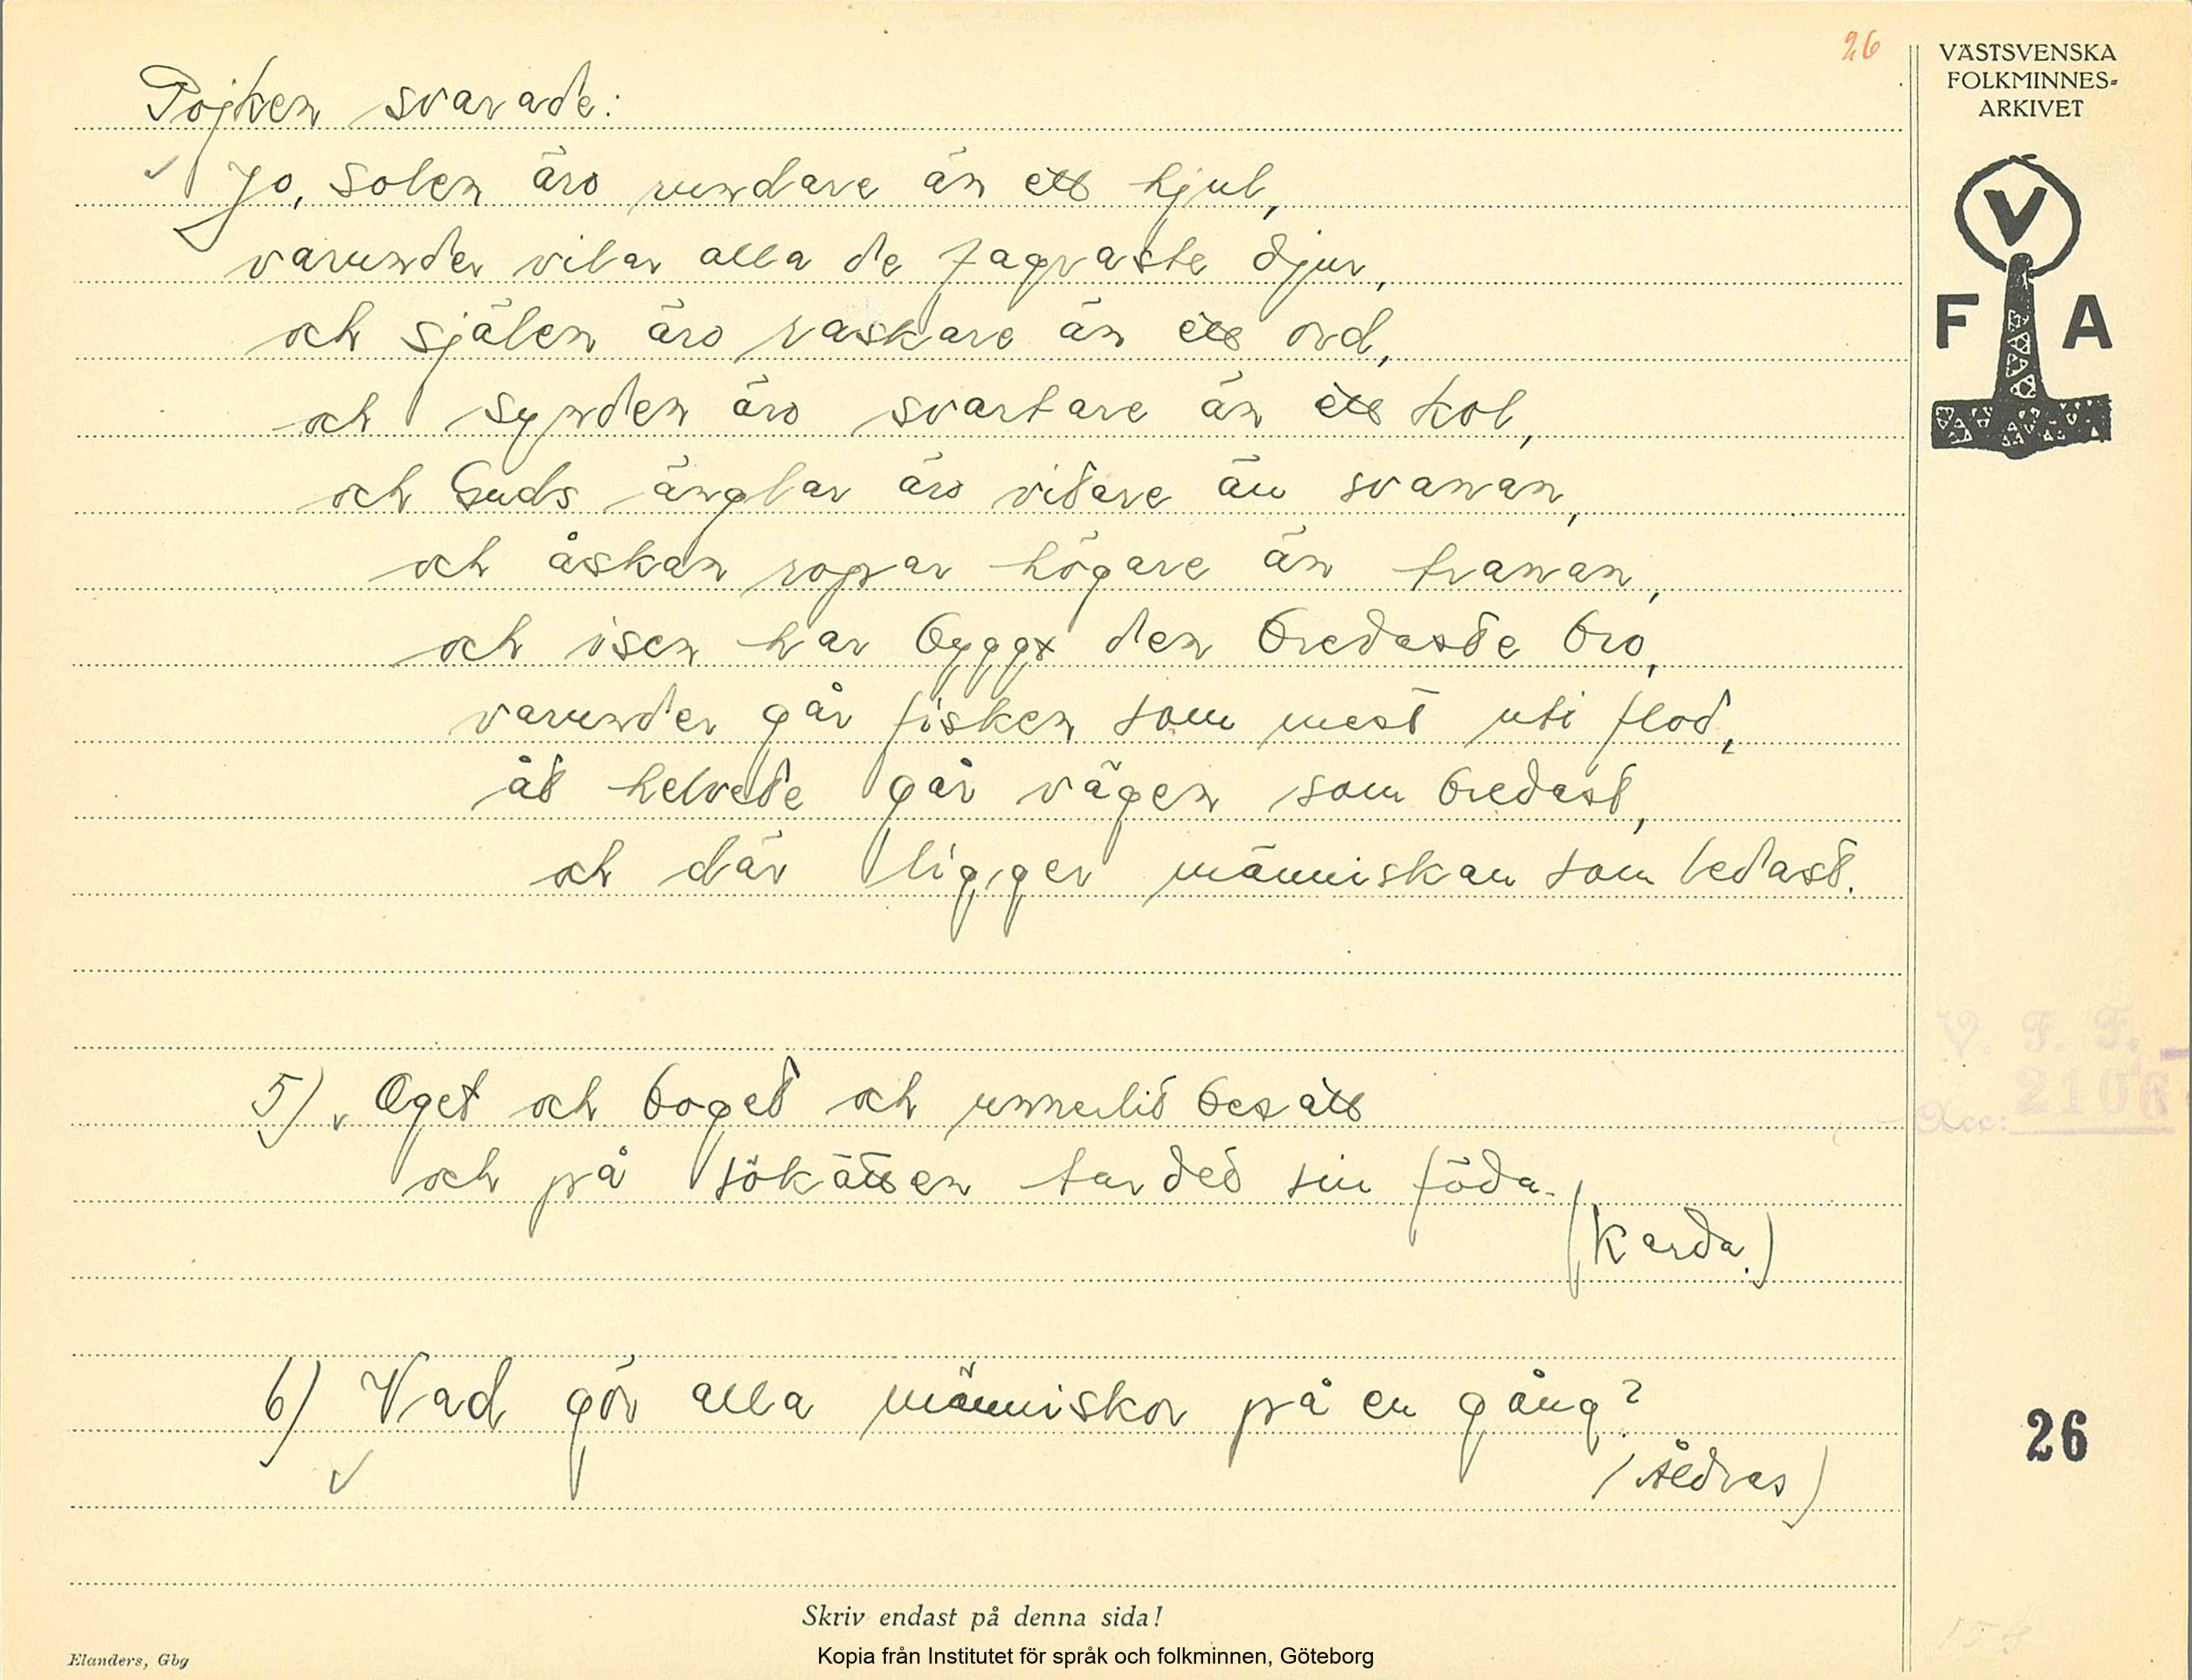 26
VÄSTSVENSKA
FOLKMINNES-
ARKIVET
V
F A
Pojken svarade:
Jo, solen äro rundare än ett hjul,
varunder vilar alla de fagraste djur,
och själen äro raskare än ett ord,
och synden äro svartare än ett kol,
och Guds änglar äro vitare än svanan,
och åskan ropar högare än tranan,
och isen har byggt den bredaste bro,
varunder går fisken som mest uti flod,
åt helvete går vägen som bredast,
och där ligger människan som ledast.
V. F. F.
Acc: 2106
5) Oget och boget och besatt
och på sökätten tar det sin föda.
(Karda.)
6) Vad gör alla människor på en gång?
(Åldras)
26
Skriv endast på denna sida!
Kopia från Institutet för språk och folkminnen, Göteborg
Elanders, Gbg